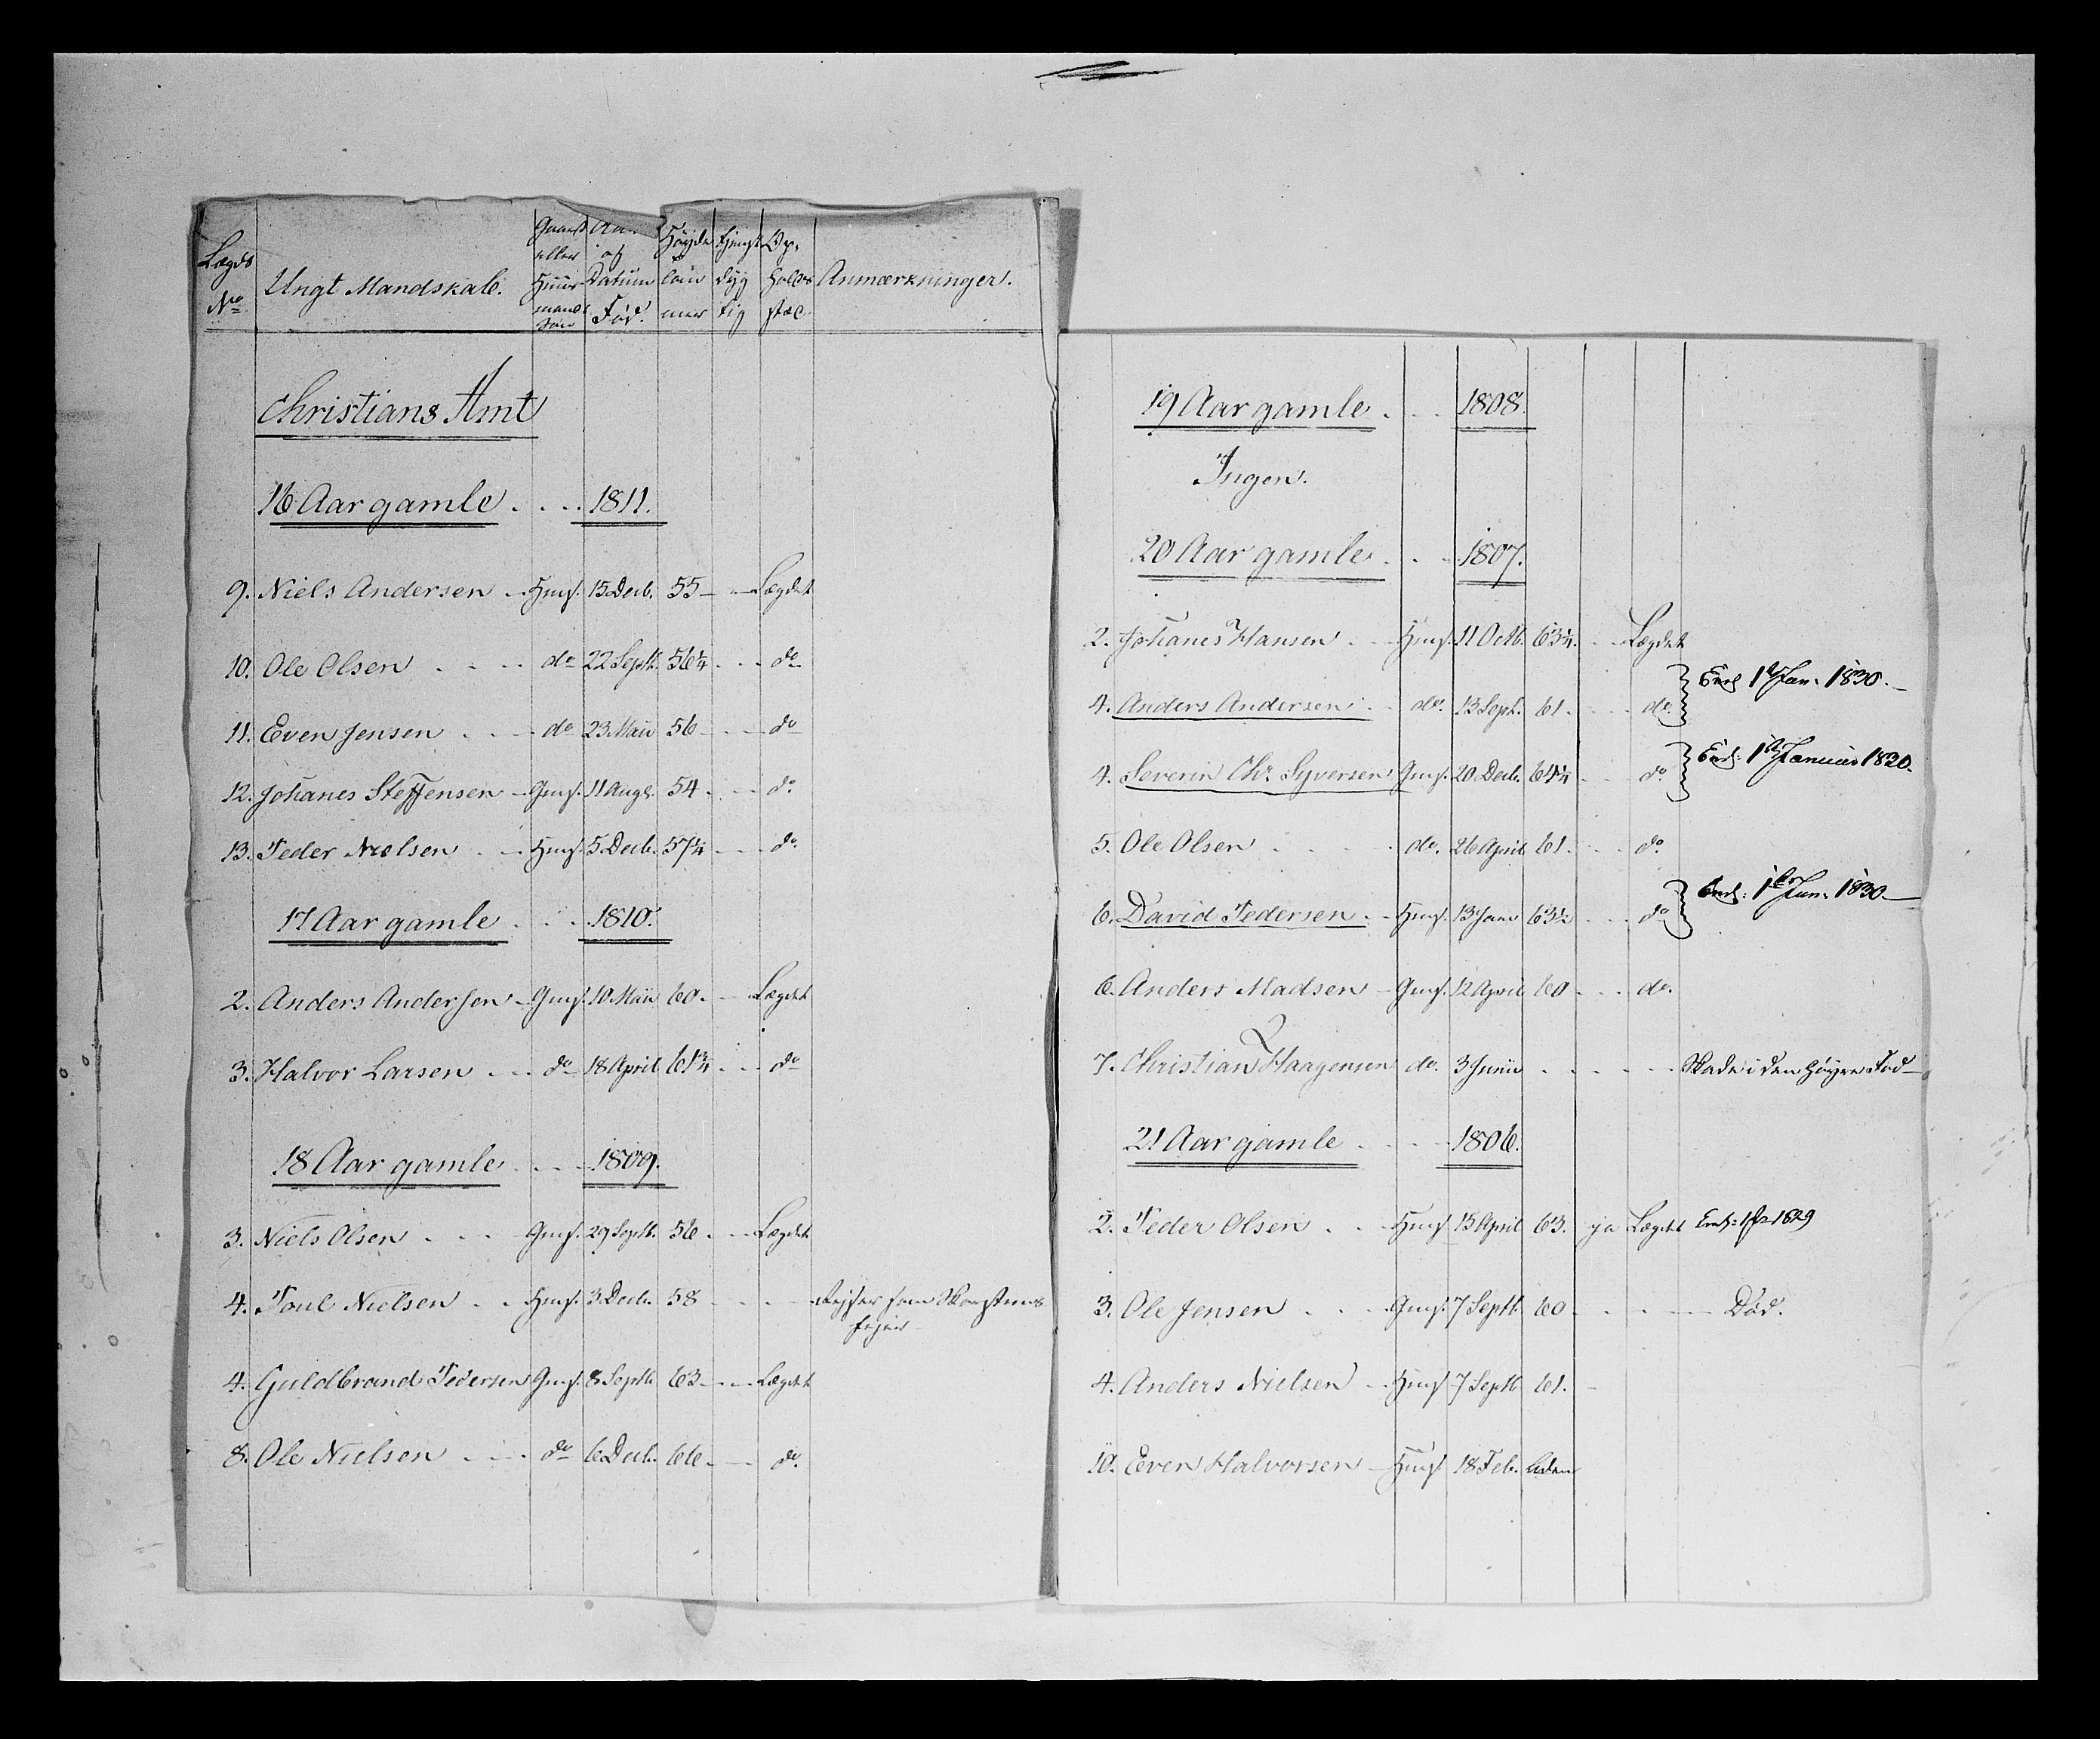 Lægds No Ungt Mandskab. Gaard eller Huusmands Søn Aar og Datum Fød. Høyde Tommer Tjenst dygtig Opholds stæd. Anmærkninger.
Christians Amt
16 Aar gamle . . . 1811.
9. Niels Andersen Hmsf. 15 Decb. 55 Lægdet
10. Ole Olsen do 22 Septb. 56¼ do
11. Even Jensen do 23 Maii 56 do
12. Johanes Steffensen Gmsf. 11 Augs. 54 do
13. Peder Nielsen Hmsf. 5 Decb. 57¼ do
17 Aar gamle . . . 1810.
2. Anders Andersen Gmsf. 10 Maii 60. Lægdet
3. Halvor Larsen do 18 April 61¾ do
18 Aar gamle . . . 1809.
3. Niels Olsen Gmsf. 29 Septb. 56. Lægdet
4. Poul Nielsen Hmsf. 3 Decb. 58 Rejser som Skorsteens
fejer
4. Guldbrand Pedersen Gmsf. 8 Septb 63 Lægdet
8. Ole Nielsen do 6 Decb. 66 do.
19 Aar gamle . . . 1808.
Ingen.
20 Aar gamle . . 1807.
2. Johanes Hansen Hmsf. 11 Octb. 63¼. Lægdet
4. Anders Andersen do. 13 Sept. 61. do. 1te Jan. 1830.
4. Severin Chr. Syversen Gmsf. 20 Decb. 64¼ do 1te Januar 1830.
5. Ole Olsen do. 26 April 61. do.
6. David Pedersen Hmsf. 13 Janr 63½ do 1te Jan. 1830
6. Anders Madsen Gmsf. 12 April 60 do.
7. Christian Haagensen do. 3 Junii Skade i den høyre Fod
21 Aar gamle . . . 1806.
2. Peder Olsen Hmsf 15 April 63. ja Lægdet 1829
3. Ole Jensen Gmsf. 7 Septb. 60 Død.
4. Anders Nielsen Hmsf 7 Septb 61.
10. Even Halvorsen Hmsf 18 Feb.